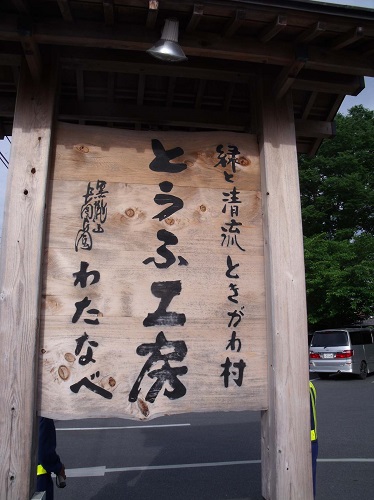 緑と清流 ときがわ村
とうふ工房
わたなべ